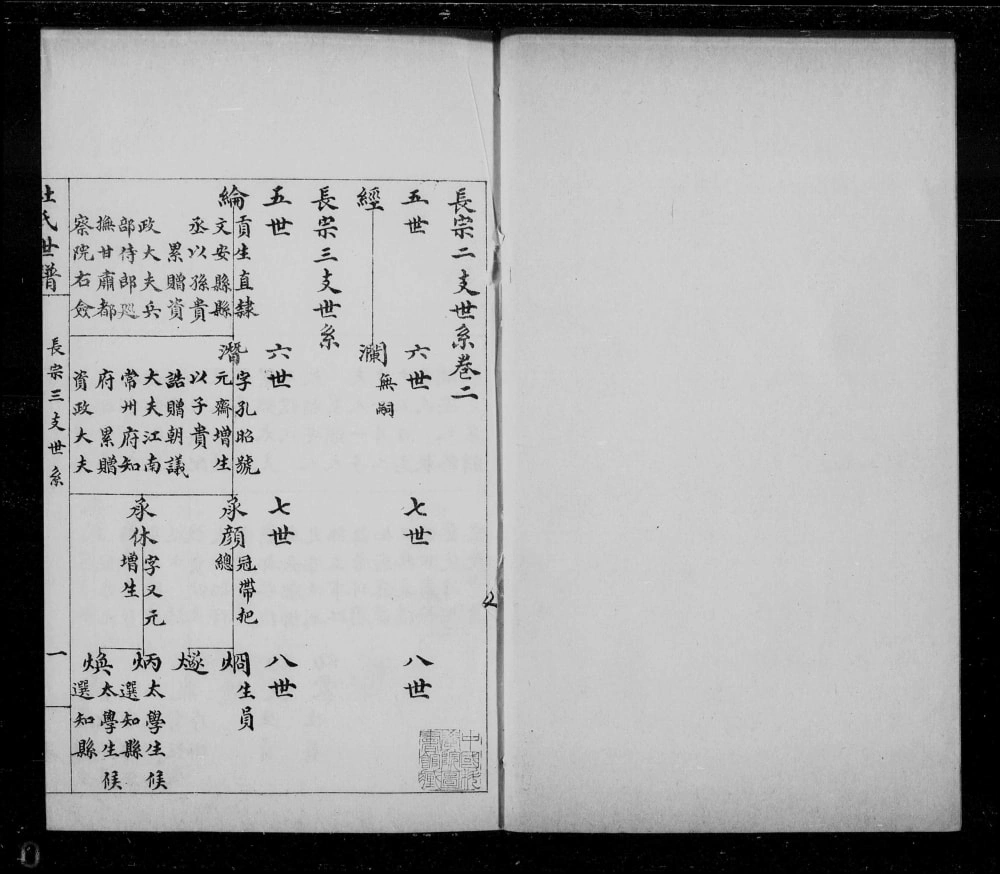 長宗二支世系卷二
五世
六世
七世
八世
經
瀾
無嗣
長宗三支世系
五世
六世
七世
八世
綸
貢生直隸
文安縣縣
丞以孫貴
累贈資
政大夫兵
部侍郎巡
撫甘肅都
察院右僉
濳
字孔昭號
元齋增生
以子貴
誥贈朝議
大夫江南
常州府知
府累贈
資政大夫
承顏
冠帶把
總
烱
生員
燧
承休
字又元
增生
炳
太學生候
選知縣
煥
太學生候
選知縣
杜氏世譜
長宗三支世系
一